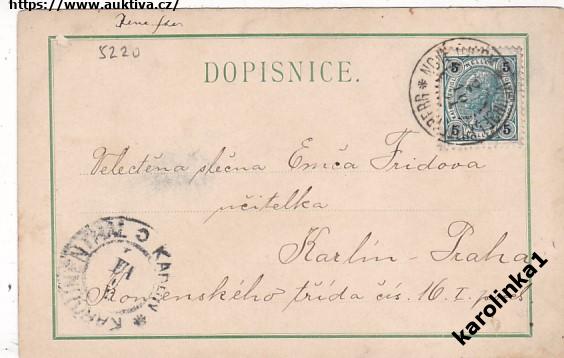 https://www.auktiva.cz/
5220
DOPISNICE.
5 5
5 5
Velectěna slečna Emča Fridova
učitelka
Karlín-Praha
Komenského třída čís. 16. I. p
KAROLINENTHAL KARLÍN
karolinka1